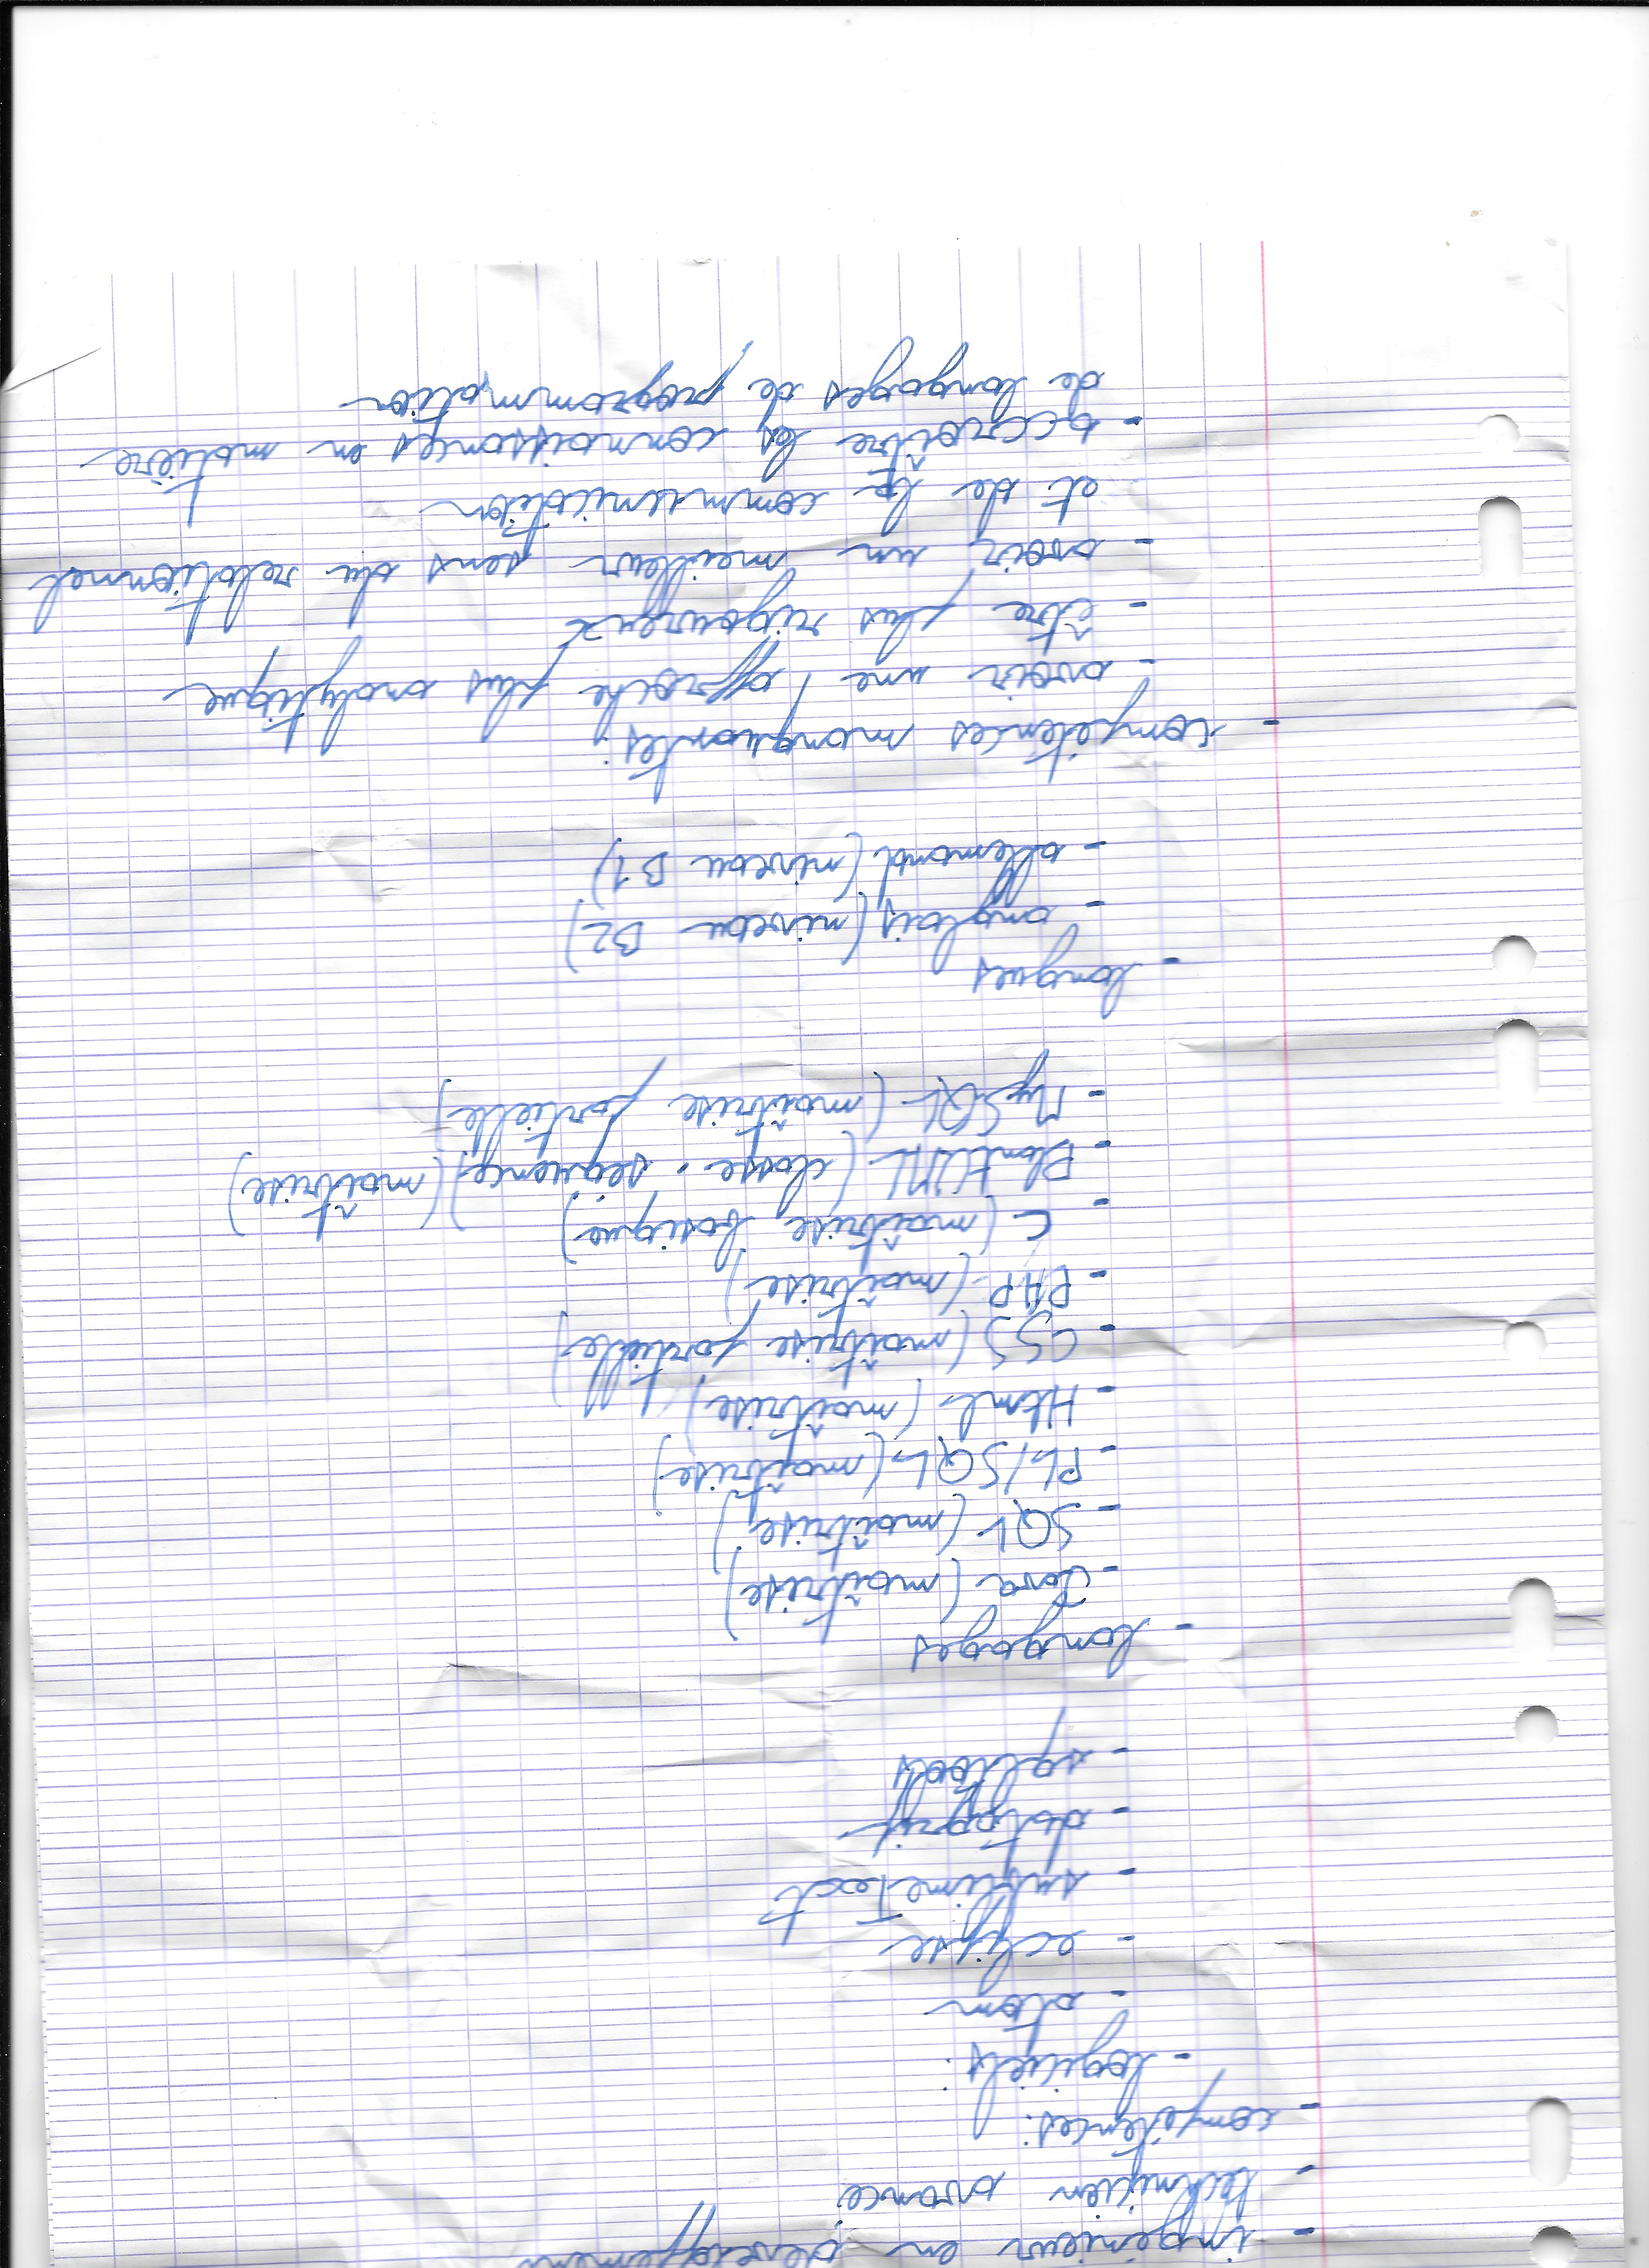 - ingénieur en développement
- technicien avancé
- compétences :
- logiciels :
- atom
- eclipse
- sublimeText
- datagrip
- sqltools
- langages
- Java (maîtrise)
- SQL (maîtrise)
- PL/SQL (maîtrise)
- Html (maîtrise)
- CSS (maîtrise partielle)
- PHP (maîtrise)
- C (maîtrise basique)
- PlantUML (classe, séquence) (maîtrise)
- MySQL (maîtrise partielle)
- langues
- anglais (niveau B2)
- allemand (niveau B1)
- compétences manquantes :
- avoir une approche plus analytique
- être plus rigoureux
- avoir un meilleur sens du relationnel
et de la communication
- accroître les connaissances en matière
de langages de programmation